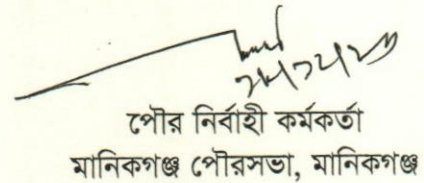 পৌর নির্বাহী কর্মকর্তা
মানিকগঞ্জ পৌরসভা, মানিকগঞ্জ